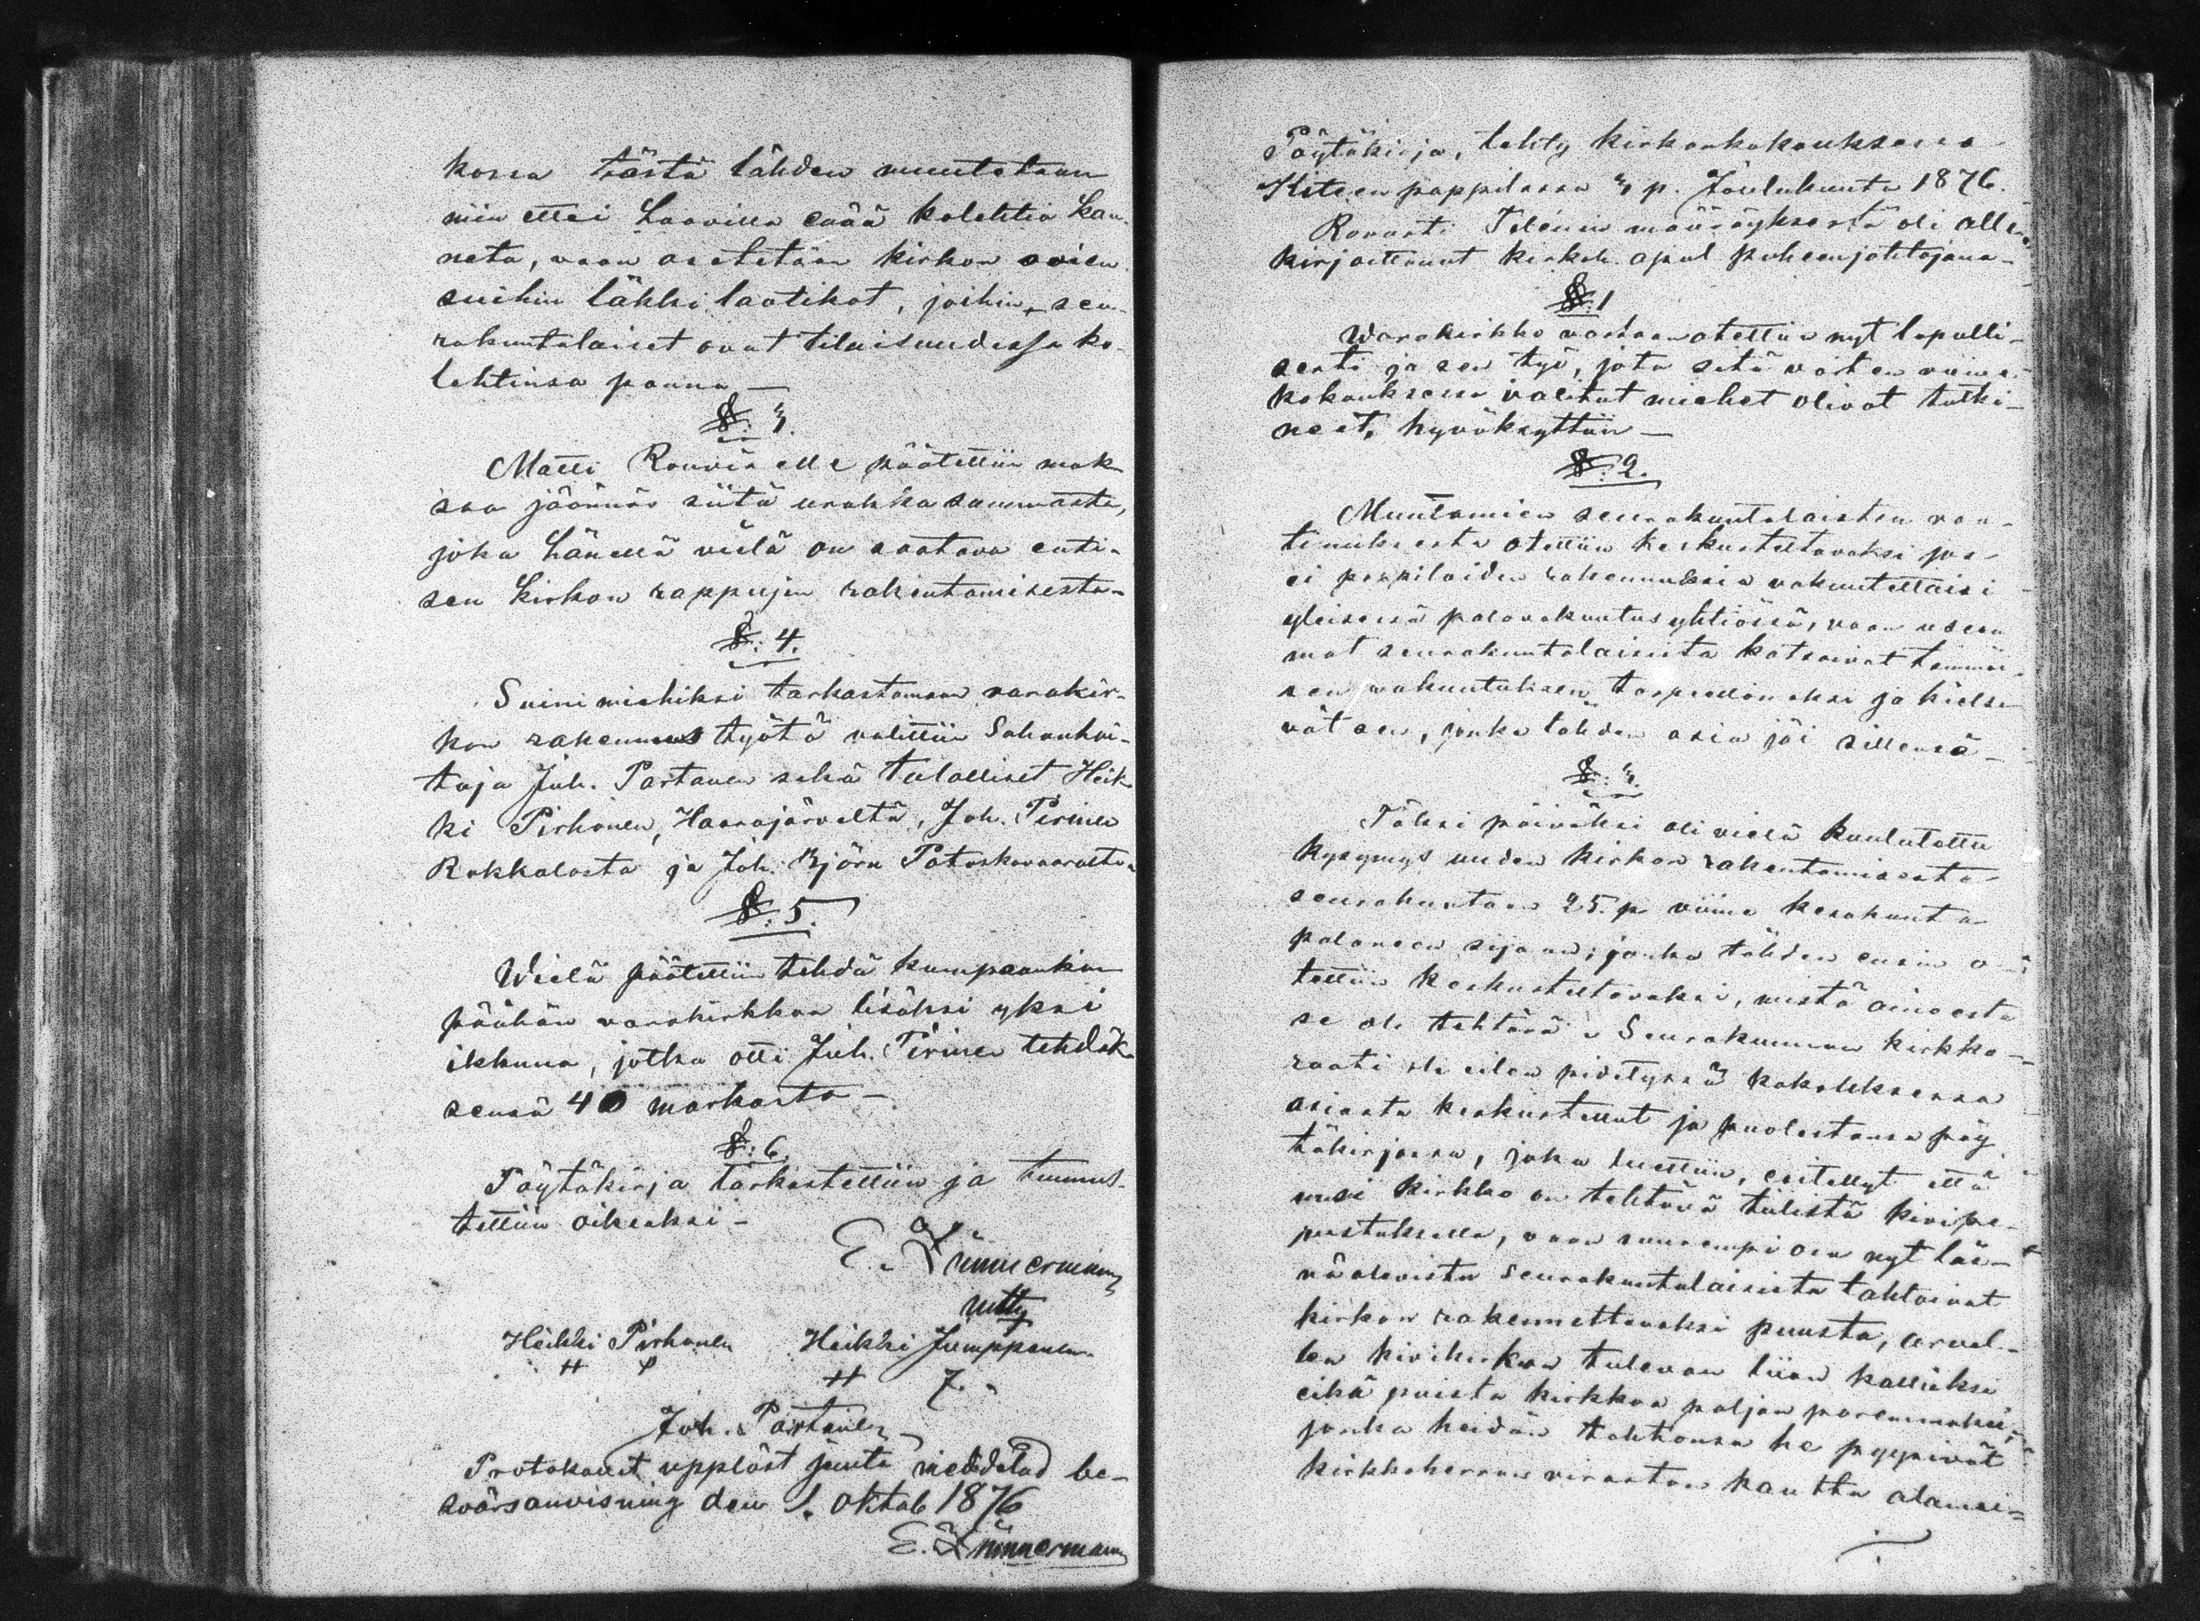 kossa tästä lähden muutetaan
niin ettei Haavilla enää kolehtia kan-
neta, vaan asetetaan kirkon ovien
suihin läkki laatikot, joihin seu-
rakuntalaiset ovat tilaisuudessa ko-
lehtinsa panna —
§: 3.
Matti Rouviaselle päätettiin mak-
saa jäännös siitä urakka summasta,
joka hänellä vielä on saatava enti-
sen kirkon rappujen rakentamisesta-
§: 4.
Suini miehiksi tarkastamaan varakir-
kon rakennus työtä valittiin Sahanhoi-
taja Joh. Partanen sekä talolliset Heik-
ki Pirhonen, Haarajärveltä, Joh. Pirinen
Rokkalasta ja Joh. Björn Potoskavaaralta
§: 5.
Wielä päätettiin tehdä kumpaankin
päähän varakirkkoa lisäksi yksi
ikkuna, jotka otti Joh. Pirinen tehdäk-
sensä 40 markasta —
§: 6.
Pöytäkirja tarkastettiin ja tunnus-
tettiin oikeaksi —
E. Zimmermann
Heikki Pirhonen Heikki Jumppanen
H P H J.
Joh. Partanen
Protokollet uppläst jemte meddelad be-
svärsanvisning den 1. oktob 1876
E. Zimmermann
Pöytäkirja, tehty kirkonkokouksessa
Kiteen pappilassa 3 p. Joulukuuta 1876
Rovasti Teleńin määräyksestä oli allе-
kirjoittanut kirkoh. apul puheenjohtajana-
§: 1
Warakirkko vastaanotettiin nyt lopulli-
sesti ja sen työ, jota sitä varten viime
kokouksessa valitut miehet olivat tutki-
neet, hyväksyttiin —
§: 2.
Muutamien seurakuntalaisten vaa-
timuksesta otettiin keskusteltavaksi jos-
ei pappiloiden rakennuksia vakuutettaisi
yleisessä palovakuutusyhtiössä, vaan useam-
mat seurakuntalaisista katsoivat tämmöi-
sen vakuutuksen tarpeettomaksi ja kielsi-
vät sen, jonka tähden asia jäi sillensä —
§: 3.
Täksi päiväksi oli vielä kuulutettu
kysymys uuden kirkon rakentamisesta
seurakuntaan 25. p. viime kesäkuuta
palaneen sijaan; jonka tähden ensin o-
tettiin keskusteltavaksi, mistä aineesta
se oli tehtävä. Seurakunnan kirkko-
raati oli eilen pidetyssä kokouksessa
asiasta keskustellut ja puolestansa pöy-
täkirjassa, joka luettiin, esitellyt että
uusi kirkko on tehtävä tiilistä kivipe-
rustuksella, vaan suurempi osa nyt läs-
näolevista seurakuntalaisista tahtoivat
kirkon rakennettavaksi puusta, arvel-
len kivikirkon tulevan liian kalliiksi
eikä puista kirkkoa paljon paremmaksi,
jonka heidän tahtonsa he pyysivät
kirkkoherran viraston kautta alamai-